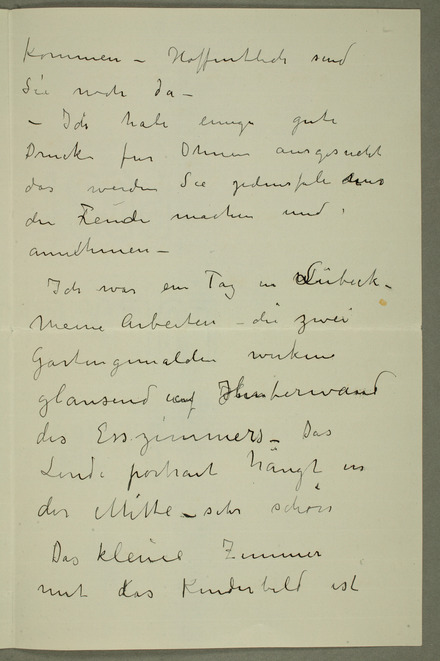 kommen – Hoffentlich sind
Sie noch da –
– Ich habe einige gute
Drucke fur Ihnen ausgesucht
das werden Sie jedenfals
die Feude machen und
annehmen –
Ich war ein Tag in Lübeck –
Meine Arbeiten – die zwei
Gartengemalden wirken
glansend auf Hinterwand
des Esszimmers – Das
Linde portrait hängt in
der Mitte – sehr schön
Das kleine Zimmer
mit das Kinderbild ist